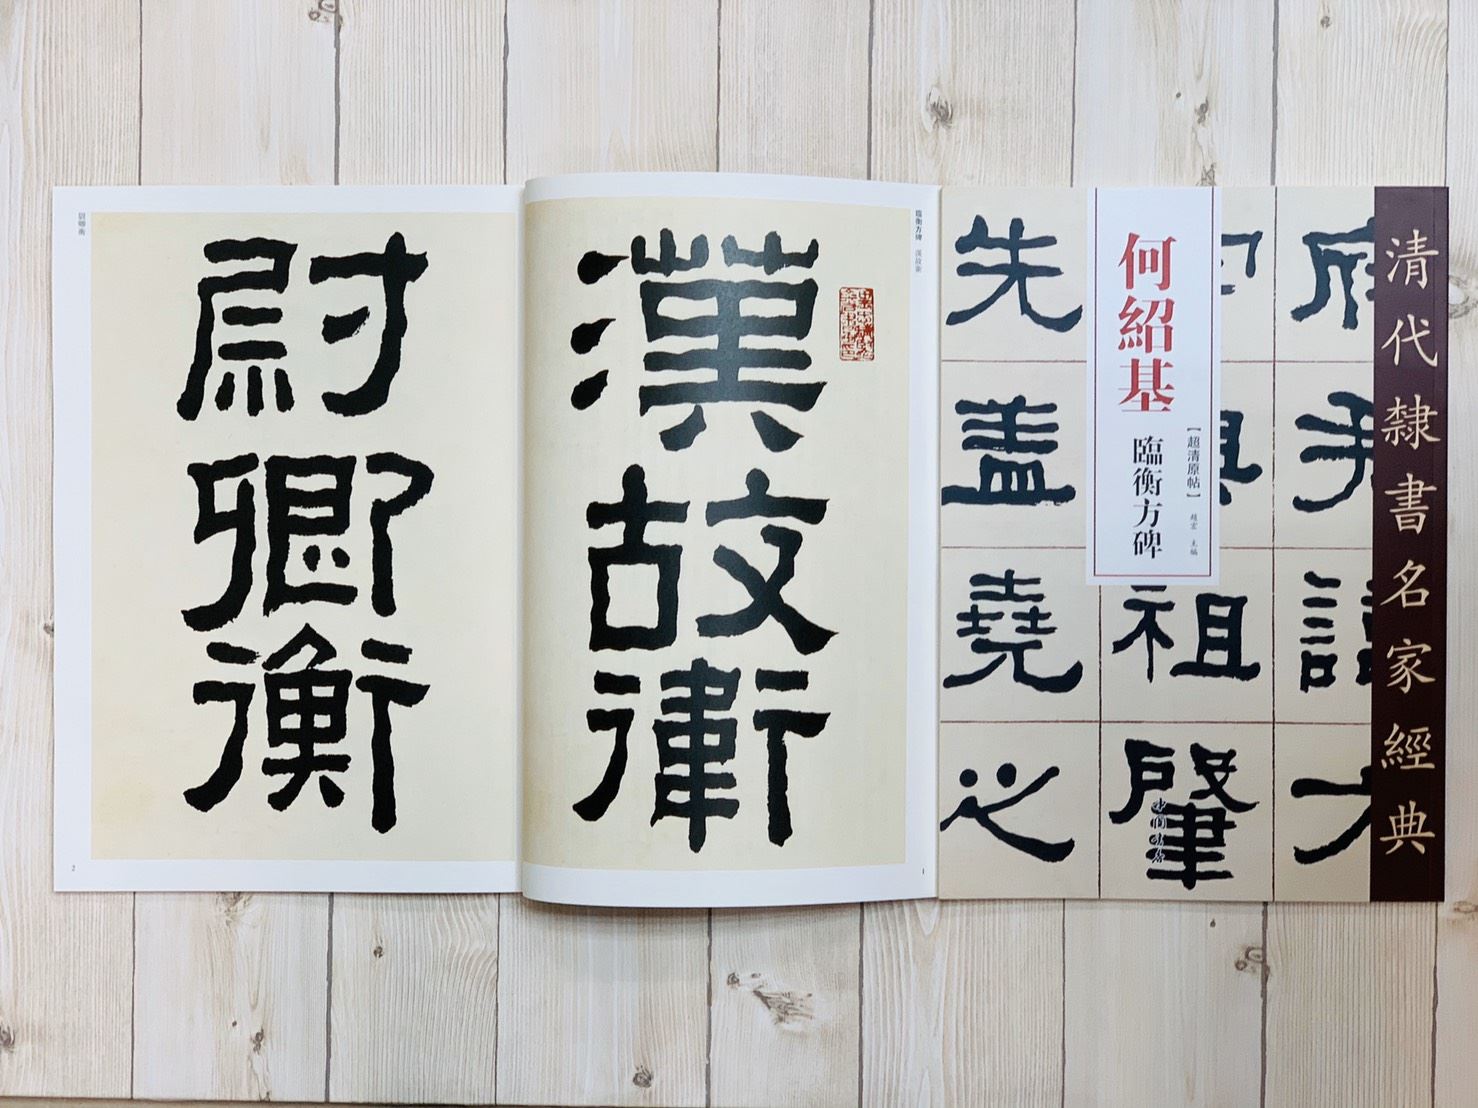 清代隸書名家經典
府君諱方
字興祖肇
先蓋堯之
【超清原帖】
趙宏 主編
何紹基
臨衡方碑
中國書店
臨衡方碑 漢故衛
漢故衛
1
尉卿衡
尉卿衡
2